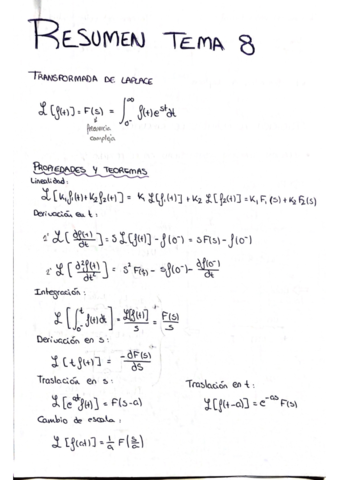 RESUMEN TEMA 8
TRANSFORMADA DE LAPLACE
ℒ[f(t)] = F(s) = ∫_{0⁻}^{∞} f(t)e^{st}dt
↓
frecuencia
compleja
PROPIEDADES Y TEOREMAS
Linealidad:
ℒ[K₁f₁(t)+K₂f₂(t)] = K₁ ℒ[f₁(t)] + K₂ ℒ[f₂(t)] = K₁F₁(s) + K₂F₂(s)
Derivación en t:
1ª ℒ[df(t)/dt] = sℒ[f(t)] - f(0⁻) = sF(s) - f(0⁻)
2ª ℒ[d²f(t)/dt²] = s²F(t) - sf(0⁻) - df(0⁻)/dt
Integración:
ℒ[∫_{0⁻}^{t} f(t)dt] = ℒ[f(t)]/s = F(s)/s
Derivación en s:
ℒ[t f(t)] = -dF(s)/ds
Traslación en s: Traslación en t:
ℒ[e^{at}f(t)] = F(s-a) ℒ[f(t-a)] = e^{-as} F(s)
Cambio de escala:
ℒ[f(at)] = 1/a F(s/a)